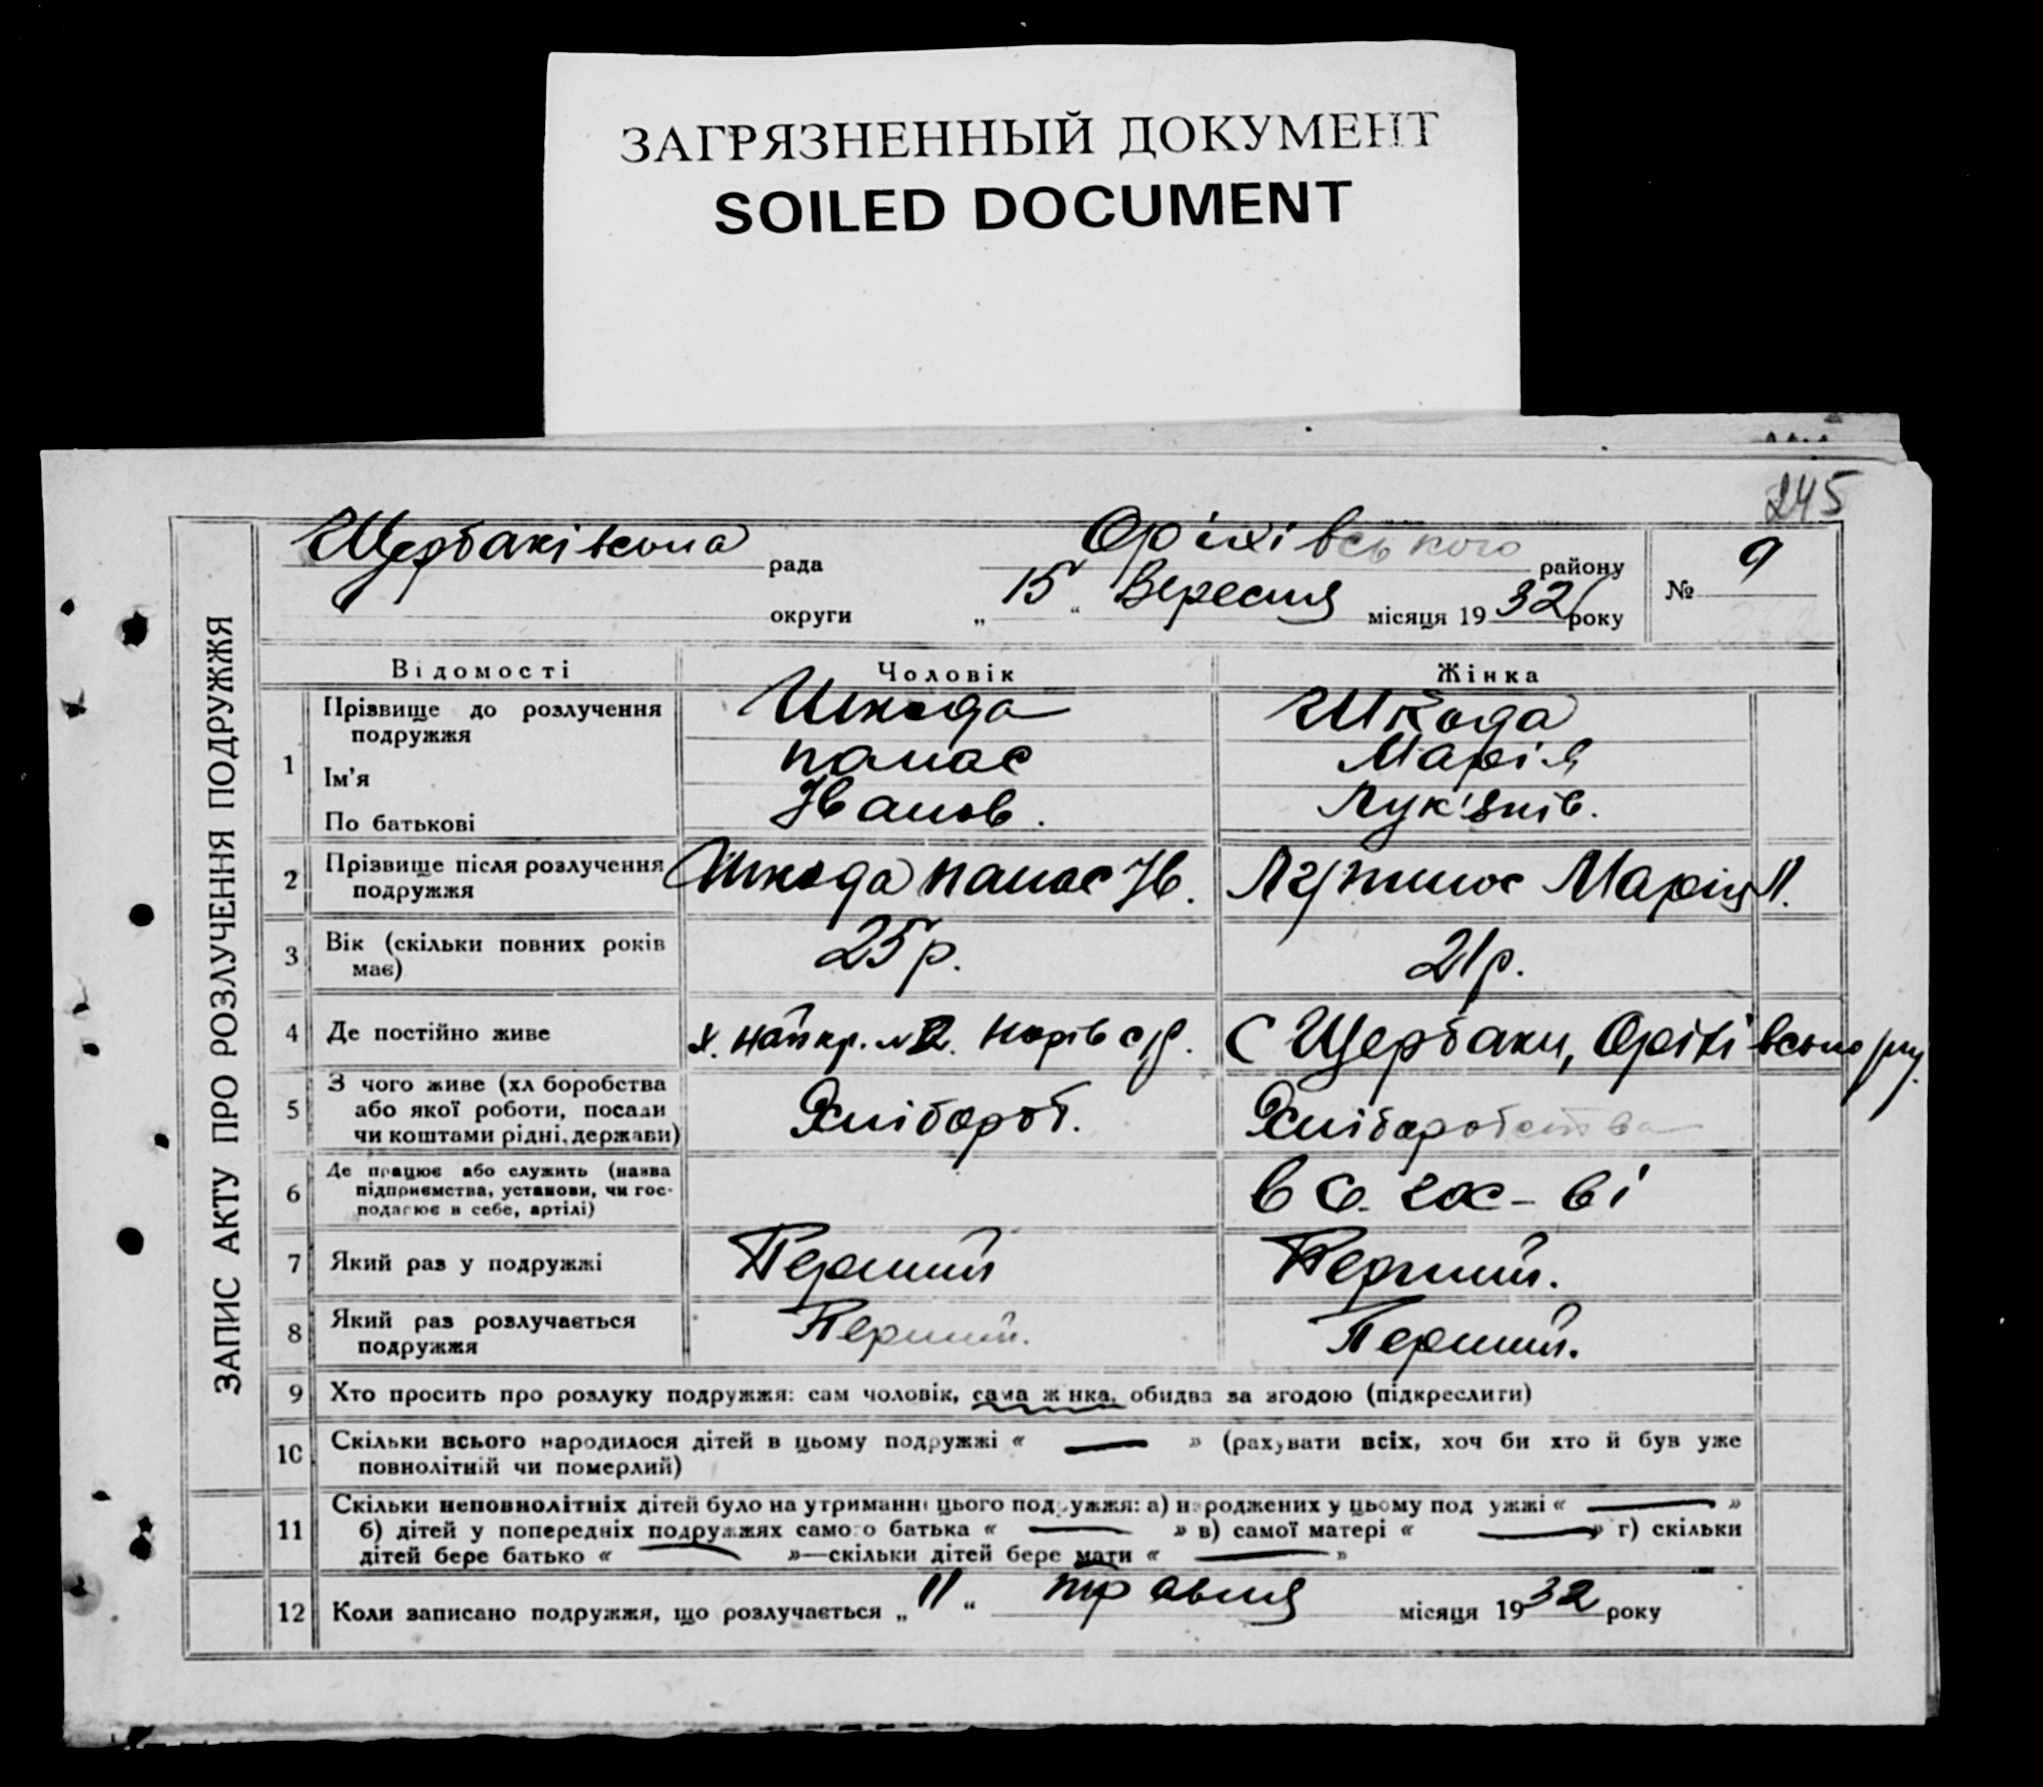 ЗАГРЯЗНЕННЫЙ ДОКУМЕНТ
SOILED DOCUMENT
245
ЗАПИС АКТУ ПРО РОЗЛУЧЕННЯ ПОДРУЖЖЯ
Щербаківська рада Оріхівського району № 9
округи „15“ Вересня місяця 1932 року
Відомості Чоловік Жінка
1 Прізвище до розлучення подружжя Шкода Шкода
Ім'я Панас Марія
По батькові Іванов. Лук'янів.
2 Прізвище після розлучення подружжя Шкода Панас Ів. Марія Л.
3 Вік (скільки повних років має) 25 р. 21 р.
4 Де постійно живе х. С Щербаки, Оріхівсько
5 З чого живе (хліборобства або якої роботи, посади чи коштами рідні, держави) Хлібороб. Хліборобства
6 Де працює або служить (назва підприємства, установи, чи господарює в себе, артілі) в с. гос-ві
7 Який раз у подружжі Перший Перший.
8 Який раз розлучається подружжя Перший. Перший.
9 Хто просить про розлуку подружжя: сам чоловік, сама жінка, обидва за згодою (підкреслити)
10 Скільки всього народилося дітей в цьому подружжі « — » (рахувати всіх, хоч би хто й був уже
повнолітній чи померлий)
11 Скільки неповнолітніх дітей було на утриманні цього подружжя: а) народжених у цьому подружжі « — »
б) дітей у попередніх подружжях самого батька « — » в) самої матері « — » г) скільки
дітей бере батько « — »—скільки дітей бере мати « — »
12 Коли записано подружжя, що розлучається „11“ травня місяця 1932 року